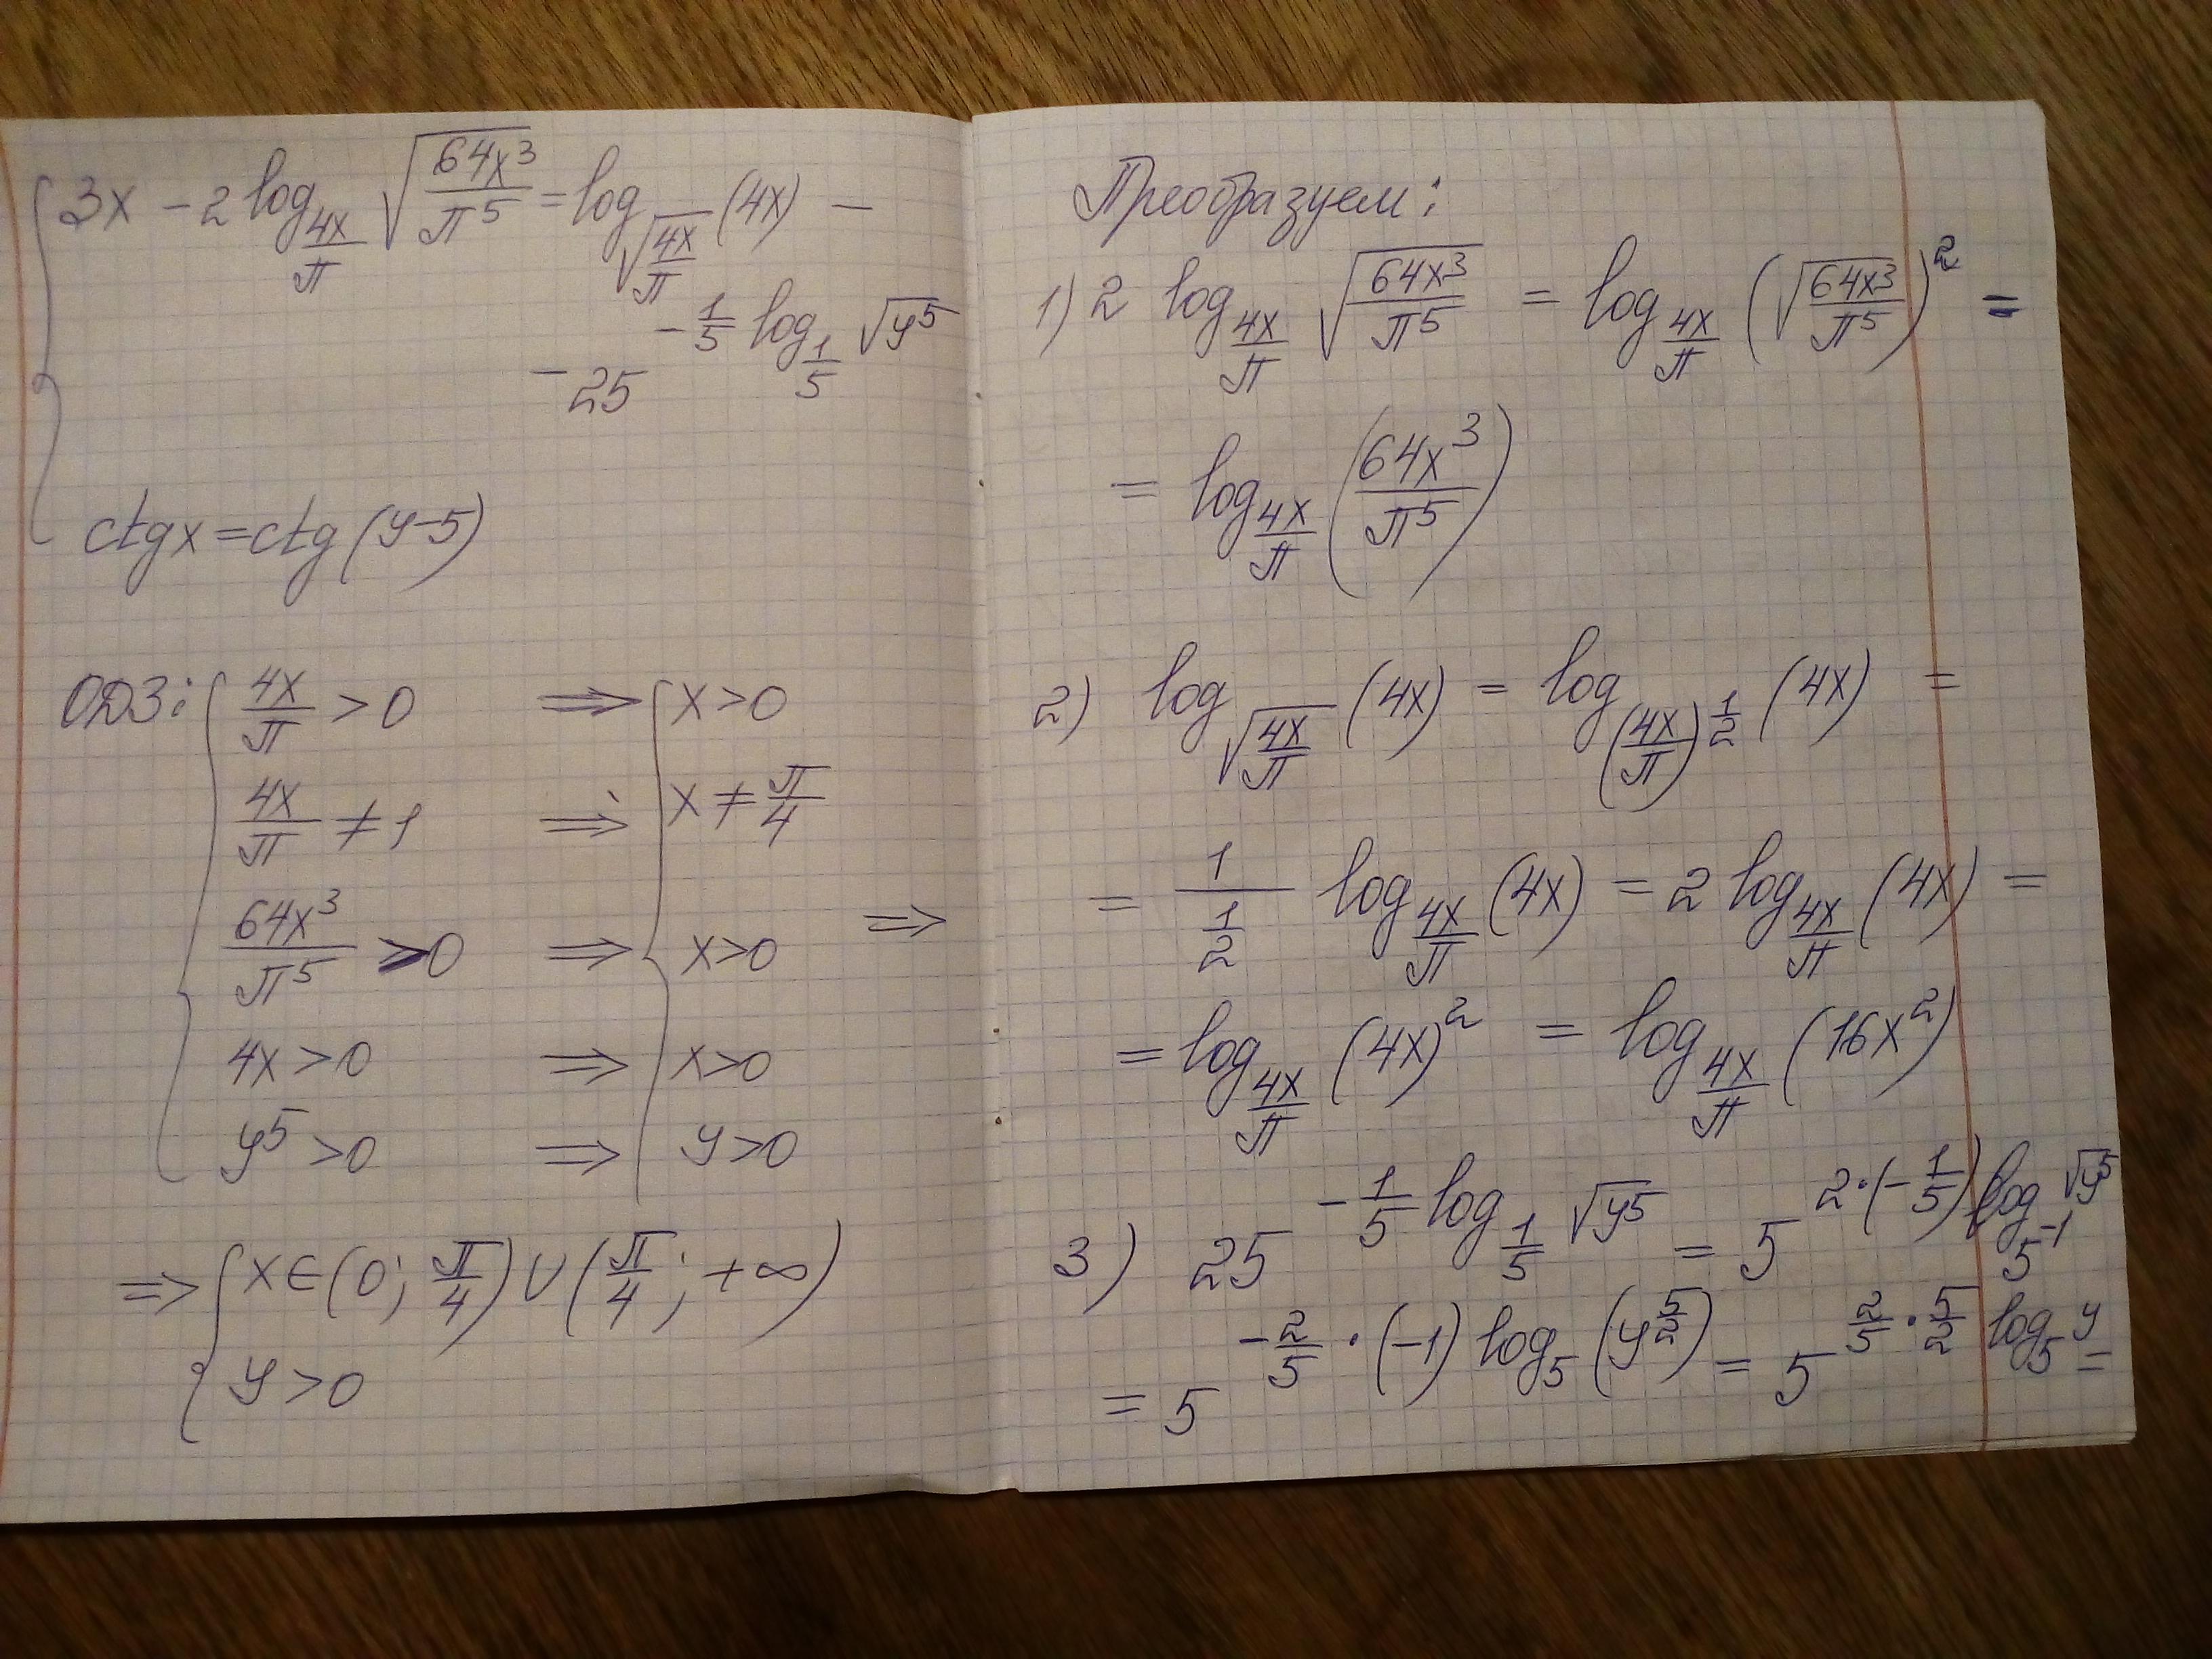 3x − 2 log_{4x/π} √(64x³/π⁵) = log_{√(4x/π)} (4x) −
− 25^{−1/5 log_{1/5} √y⁵}
ctg x = ctg (y−5)
ОДЗ: { 4x/π > 0 ⇒ { x > 0
4x/π ≠ 1 ⇒ x ≠ π/4
64x³/π⁵ > 0 ⇒ x > 0 ⇒
4x > 0 ⇒ x > 0
y⁵ > 0 ⇒ y > 0
⇒ { x ∈ (0; π/4) ∪ (π/4; +∞)
y > 0
Преобразуем:
1) 2 log_{4x/π} √(64x³/π⁵) = log_{4x/π} (√(64x³/π⁵))² =
= log_{4x/π} (64x³/π⁵)
2) log_{√(4x/π)} (4x) = log_{(4x/π)^{1/2}} (4x) =
= 1/(1/2) log_{4x/π} (4x) = 2 log_{4x/π} (4x) =
= log_{4x/π} (4x)² = log_{4x/π} (16x²)
3) 25^{−1/5 log_{1/5} √y⁵} = 5^{2·(−1/5) log_{5⁻¹} √y⁵}
= 5^{−2/5 · (−1) log₅ (y^{5/2})} = 5^{2/5 · 5/2 log₅ y} =